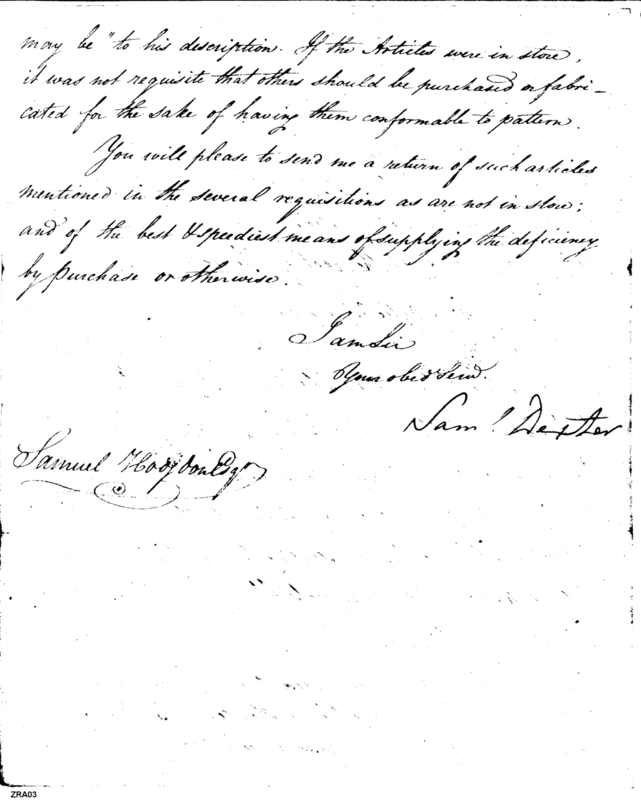 may be" to his description. If the Articles were in store,
it was not requisite that others should be purchased or fabri-
cated for the sake of having them conformable to pattern.
You will please to send me a return of such articles
mentioned in the several requisitions as are not in store;
and of the best & speediest means of supplying the deficiency
by purchase or otherwise.
I am Sir
Your obed Servt.
Saml Dexter
Samuel Hodgdon Esqr
ZRA03